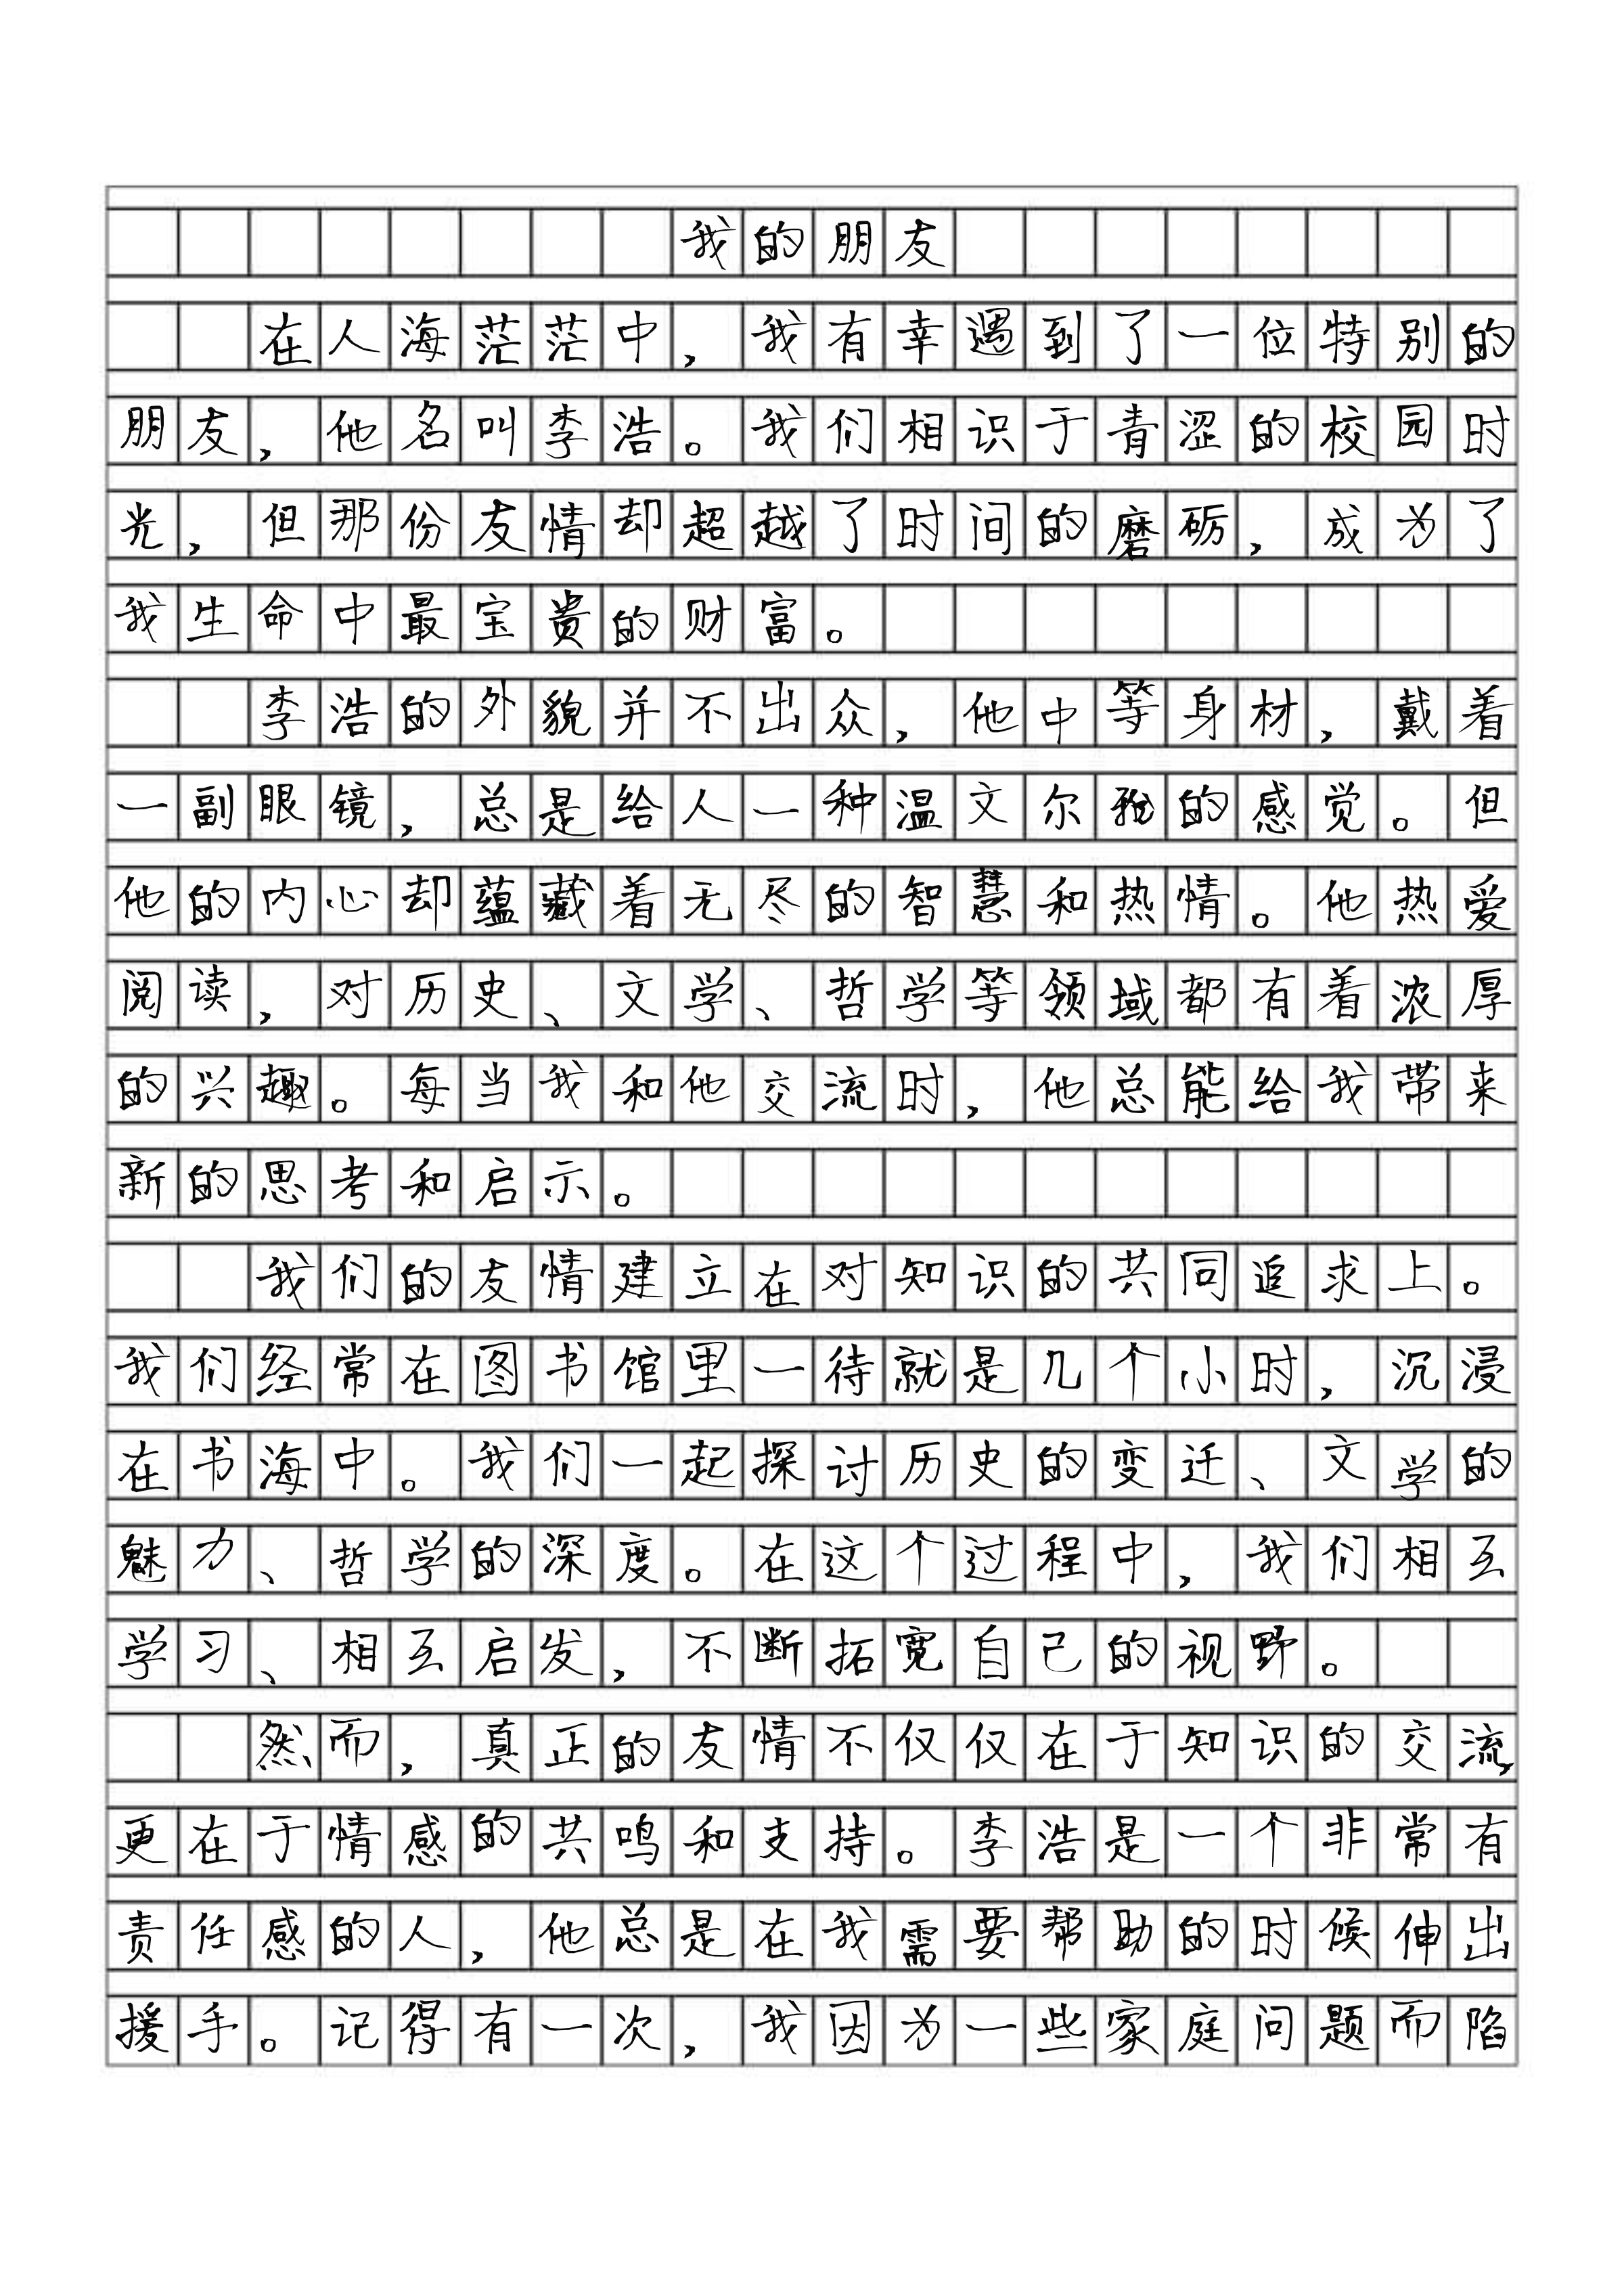 我的朋友
在人海茫茫中，我有幸遇到了一位特别的
朋友，他名叫李浩。我们相识于青涩的校园时
光，但那份友情却超越了时间的磨砺，成为了
我生命中最宝贵的财富。
李浩的外貌并不出众，他中等身材，戴着
一副眼镜，总是给人一种温文尔雅的感觉。但
他的内心却蕴藏着无尽的智慧和热情。他热爱
阅读，对历史、文学、哲学等领域都有着浓厚
的兴趣。每当我和他交流时，他总能给我带来
新的思考和启示。
我们的友情建立在对知识的共同追求上。
我们经常在图书馆里一待就是几个小时，沉浸
在书海中。我们一起探讨历史的变迁、文学的
魅力、哲学的深度。在这个过程中，我们相互
学习、相互启发，不断拓宽自己的视野。
然而，真正的友情不仅仅在于知识的交流，
更在于情感的共鸣和支持。李浩是一个非常有
责任感的人，他总是在我需要帮助的时候伸出
援手。记得有一次，我因为一些家庭问题而陷